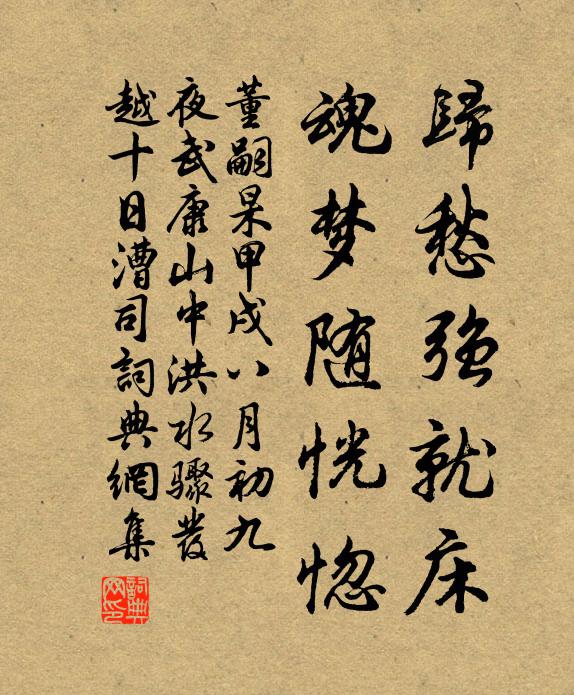 歸愁強就床
魂梦随恍惚
董嗣杲甲戌八月初九
夜武康山中洪水驟發
越十日漕司詞典網集
詞典网印